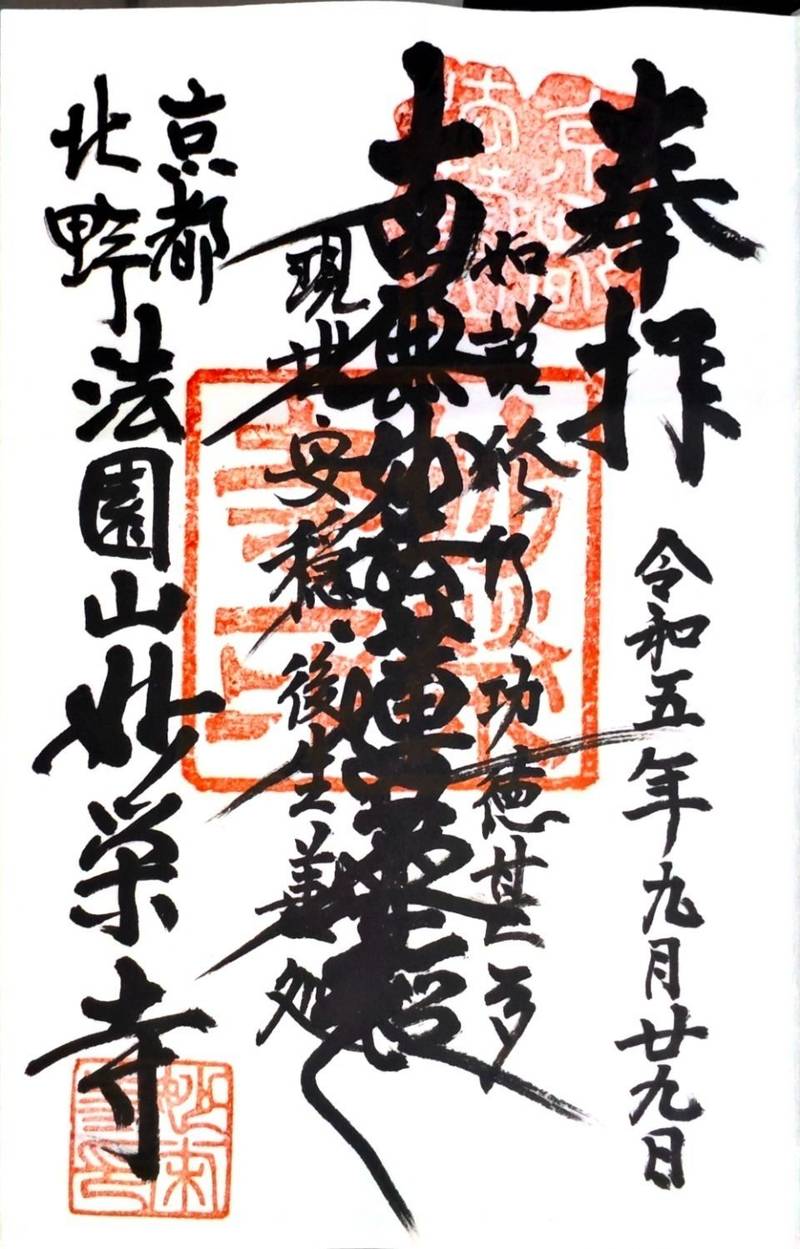 奉拝
令和五年九月廿九日
如説修行功徳甚多
南無妙法蓮華経
現世安穏後生善処
京都
北野
法園山妙栄寺